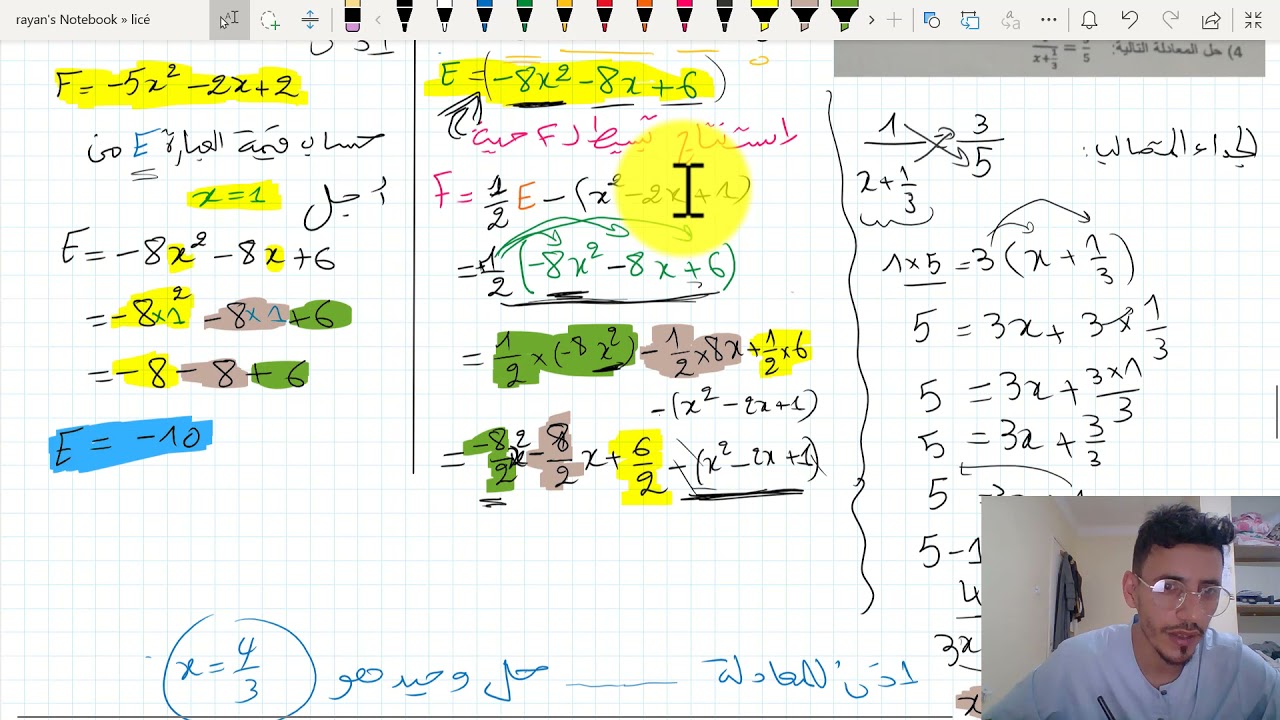 rayan's Notebook » licé
F = -5x² - 2x + 2
حساب قيمة العبارة E من
أجل x = 1
E = -8x² - 8x + 6
= -8×1² - 8×1 + 6
= -8 - 8 + 6
E = -10
E = (-8x² - 8x + 6)
استنتاج تبسيط لـ F
F = 1/2 E - (x² - 2x + 1)
= +1/2 (-8x² - 8x + 6)
= 1/2 × (-8x²) - 1/2 × 8x + 1/2 × 6
- (x² - 2x + 1)
= -8/2 x² - 8/2 x + 6/2 - (x² - 2x + 1)
4) حل المعادلة التالية:
الجداء المتصالب:
1/(x + 1/3) = 3/5
1×5 = 3(x + 1/3)
5 = 3x + 3 × 1/3
5 = 3x + 3×1/3
5 = 3x + 3/3
5 = 3x
5 - 1
4
3x
x
اذن للمعادلة حل وحيد هو x = 4/3